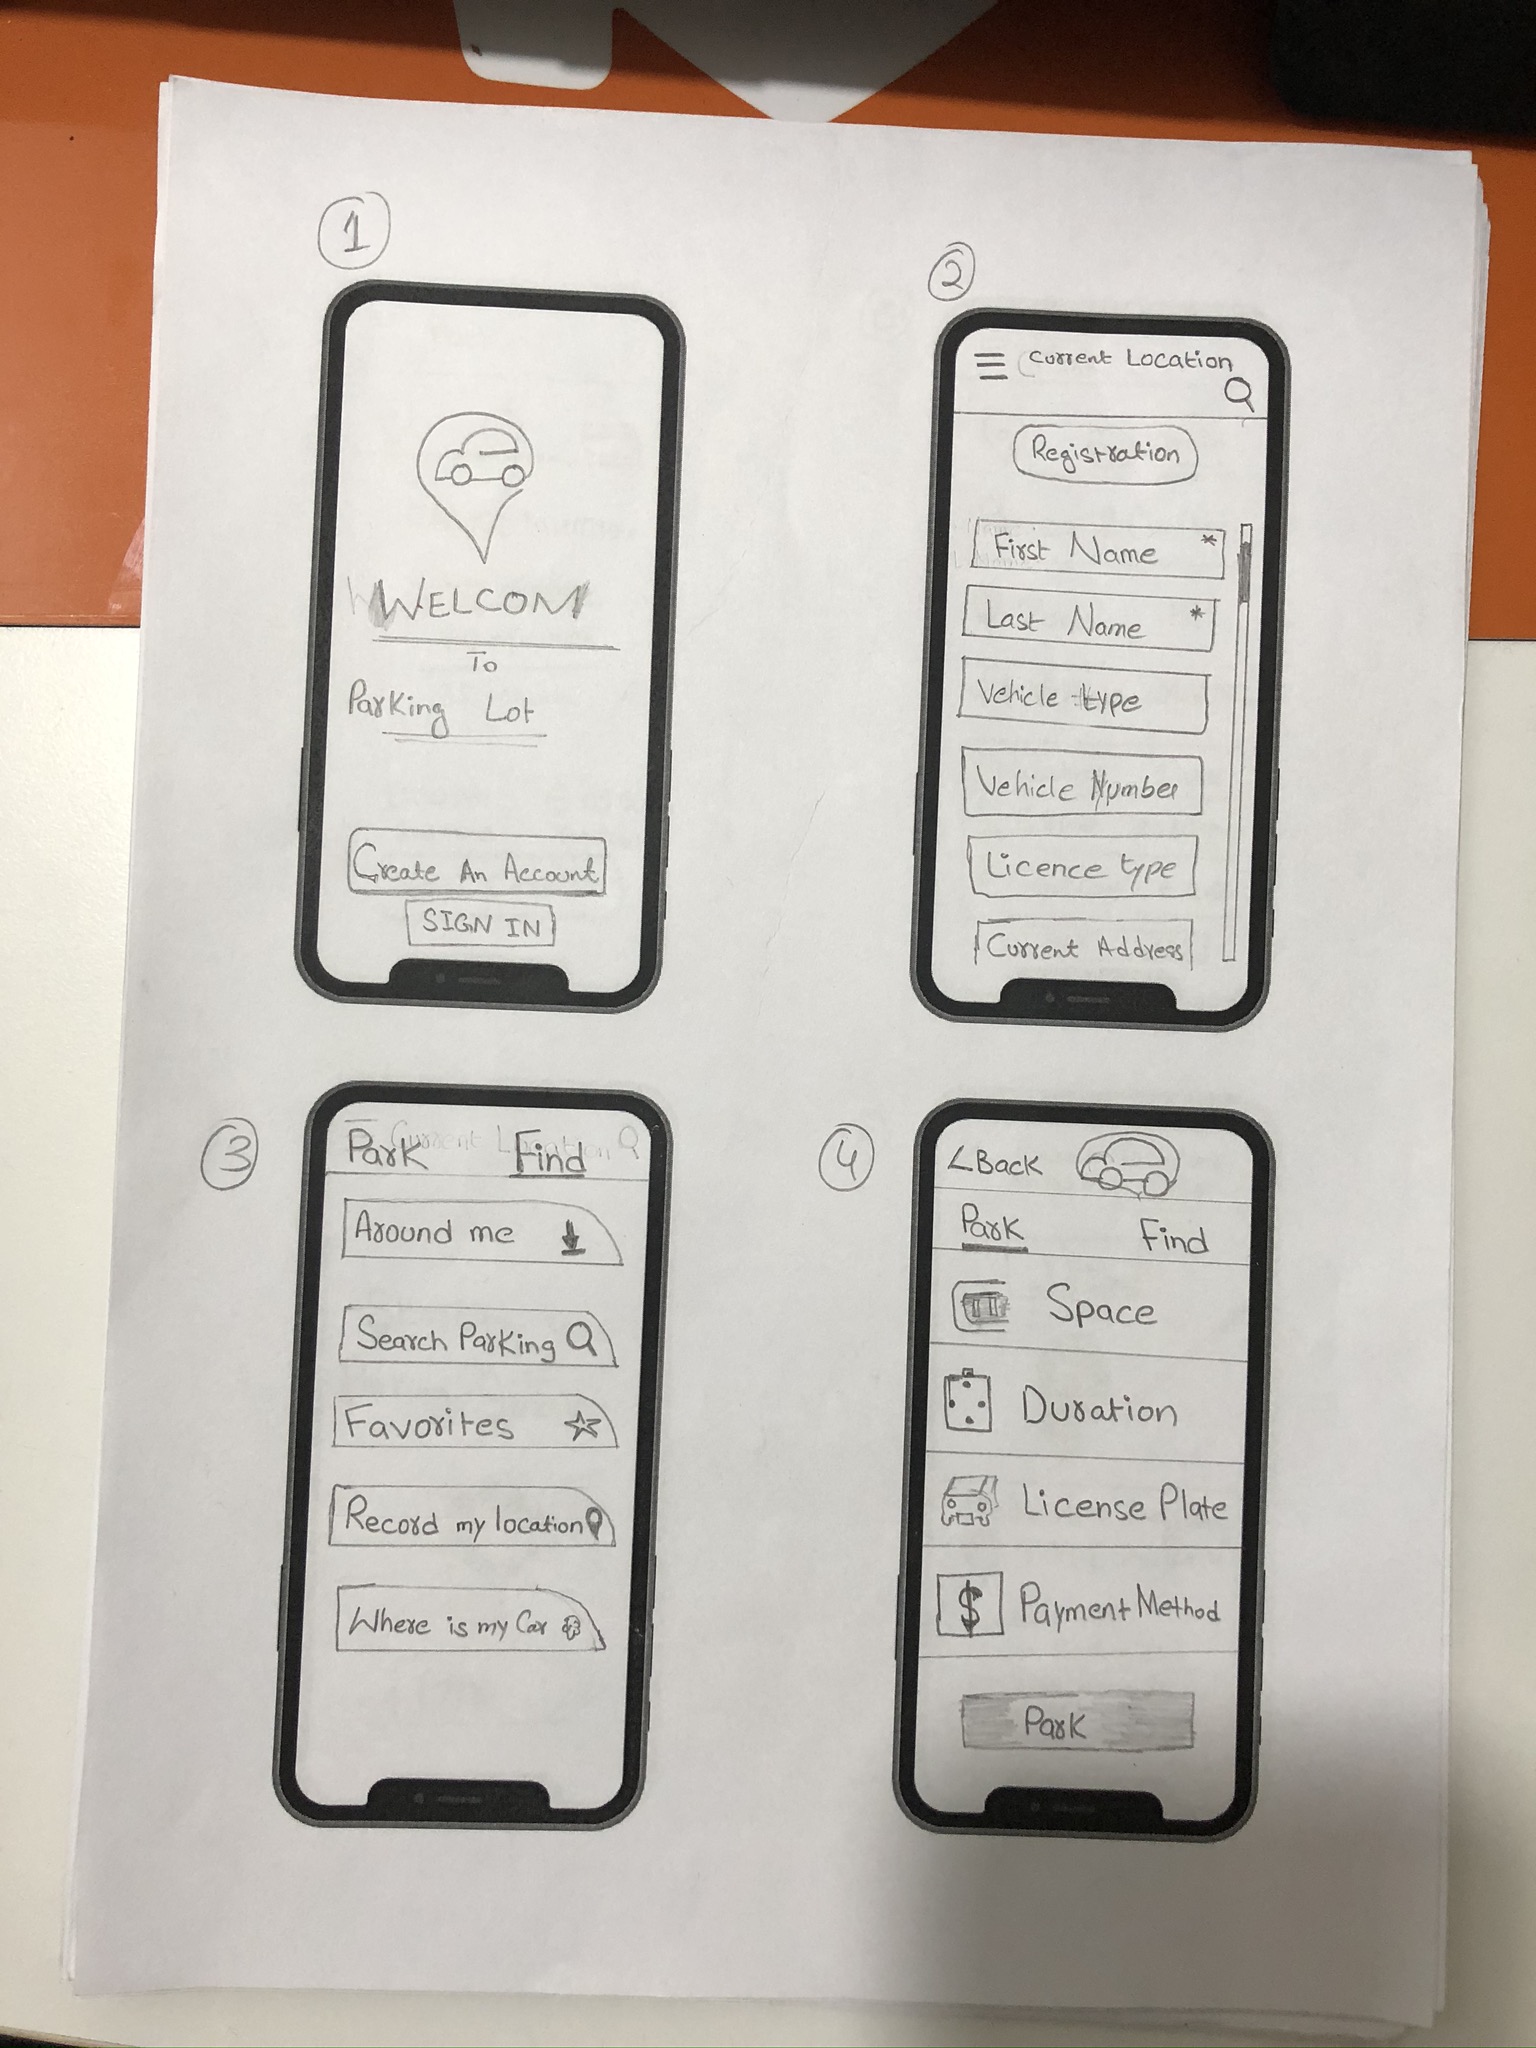 1
WELCOM
To
Parking Lot
Create An Account
SIGN IN
2
Current Location
Registration
First Name *
Last Name *
Vehicle type
Vehicle Number
Licence type
Current Address
3
Park Find
Around me
Search Parking
Favorites
Record my location
Where is my Car
4
<Back
Park Find
Space
Duration
License Plate
$ Payment Method
Park